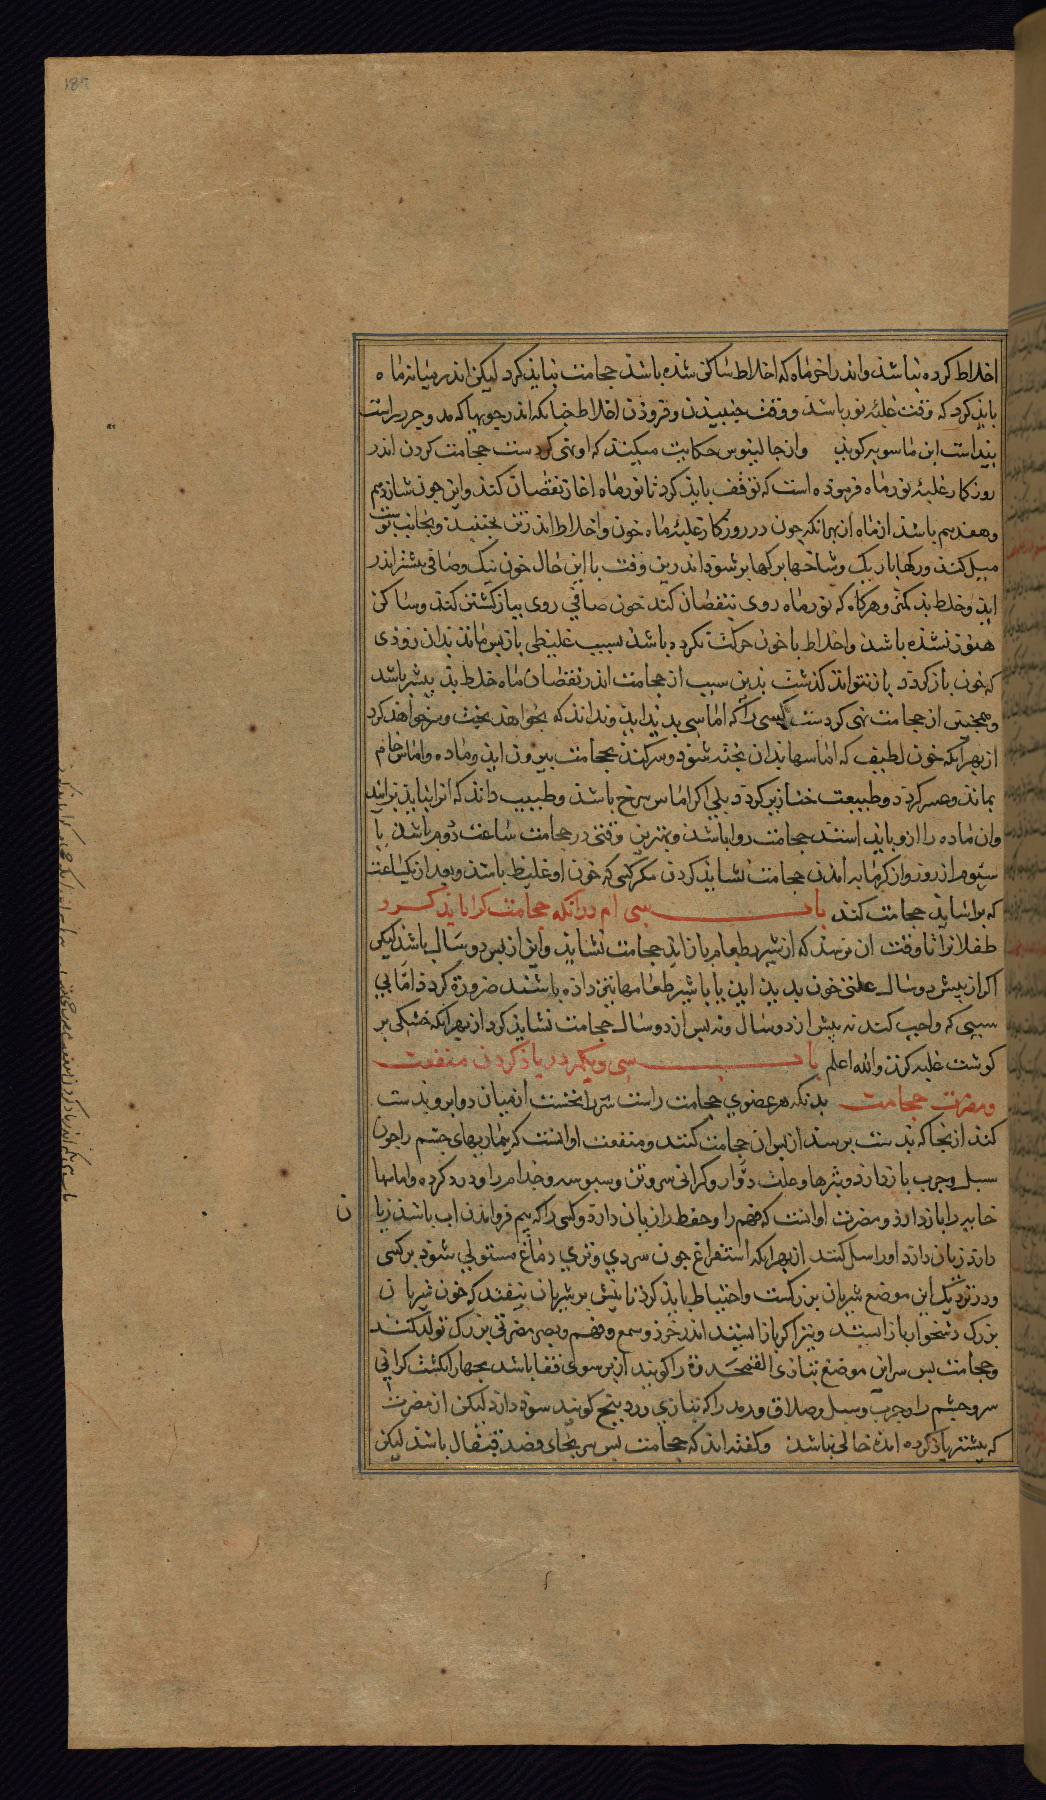 187
اخلاط کرده نباشد واندر اخر ماه که اخلاط ساکن شده باشد حجامت نباید کرد لیکن اندر میانه ماه
باید کرد که وقت غلبۀ نور باشد ووقت جنبیدن وفزودن اخلاط چنانکه اندر جویها که مد وجزر
است ابن ماسویه کوید وازجالینوس حکایت میکنند که او نهی کردست حجامت کردن اندر
روزکار غلبۀ نور ماه فرموده است که توقف باید کرد تا نور ماه اغاز نقصان کند واین چون شانزدهم
وهفدهم باشد از ماه از بهرانکه چون در روزکار غلبۀ ماه خون واخلاط اندر تن بجنبند وبجانب پوست
میل کند ورکهاء باریک وشاخهاء رکها پر شود اندرین وقت با این حال خون نیک وصافی بیشتر اندر
اید وخلط بد کمتر وهرکاه که نور ماه روی بنقصان کند خون صافی روی ببازکشتن کند وساکن
هنوز نشده باشد واخلاط با خون حرکت نکرده باشد بسبب غلیظی بازپس ماند بدان زوذی
که خون بازکردد باز نتواند کذشت بدین سبب از حجامت اندر نقصان ماه خلط بد بیشتر باشد
وهمچنین از حجامت نهی کردست کسی را که اماسی پدید اید وبداند که بخواهد پخت وسر خواهد کرد
از بهر انکه خون لطیف که اماسها بدان پخته شود وسر کند بحجامت بیرون اید وماده واماس خام
بماند وصلب کردد وطبیعت خنازیر کردد بلی اکر اماس سرخ باشد وطبیب داند که انرا نباید پزانید
وان ماده را ازو باید استد حجامت روا باشد وبهترین وقتی در حجامت ساعت دوم باشد یا
سیوم از روز واز کرمابه امدن حجامت نشاید کردن مکر کسی که خون او غلیظ باشد وبعد از یکساعت
که براساید حجامت کند باب سی ام در انکه حجامت کرا باید کرد
طفلانرا تا وقت ان نرسد که از شیر بطعام باز اید حجامت نشاید واین از پس دو سال باشد لیکن
اکر از پیش دو سال علتی خون پدید اید یا با شیر طعامها نیز داده باشند ضرورة کردد اما بی
سببی که واجب کند نه پیش از دو سال ونه پس از دو سال حجامت نشاید کرد از بهر انکه خشکی بر
کوشت غلبه کرد والله اعلم باب سی ویکم در یاذ کردن منفعت
ومضرت حجامت بدانکه هر عضوی حجامت راست سر را نخست از میان دو ابرو بدست
کند از بجا که بدست برسد از بر ان حجامت کنند ومنفعت او انست که بیماریهای چشم را چون
سبل وجرب باز دارد وبثرها وعلت دوار وکرانی سر وتن وسبوسه وجذام را ودرد کرده واماسها
خایه را باز دارد ومضرت او انست که فهم را وحفظ را زیان دارد وکسی را که بیم فرو امدن اب باشد زیا ن
دارد زیان دارد اورا سل کند از بهر انکه استفراغ چون سردی وتری دماغ مستولی شود بر کسی
ودر نزدیک این موضع شریان بزرکست واحتیاط باید کرد تا نیش بر شریان نیفتد که خون شریان
بزرک دشخوار باز ایستد ونیز اکر باز ایستد اندر خرد وسمع وفهم وبصر مضرتی بزرک تولد کند
وحجامت پس سر این موضع بتازی القمحدوة را کویند از بر سوی قفا باشد بچهار انکشت کرانی
سر وچشم را وجرب وسبل وصلاق ورمد را که بتازی وردینج کویند سود دارد لیکن از مضرت
که پیشتر یاذ کرده امد خالی نباشد وکفته اند که حجامت پس سر بجای فصد قیفال باشد لیکن